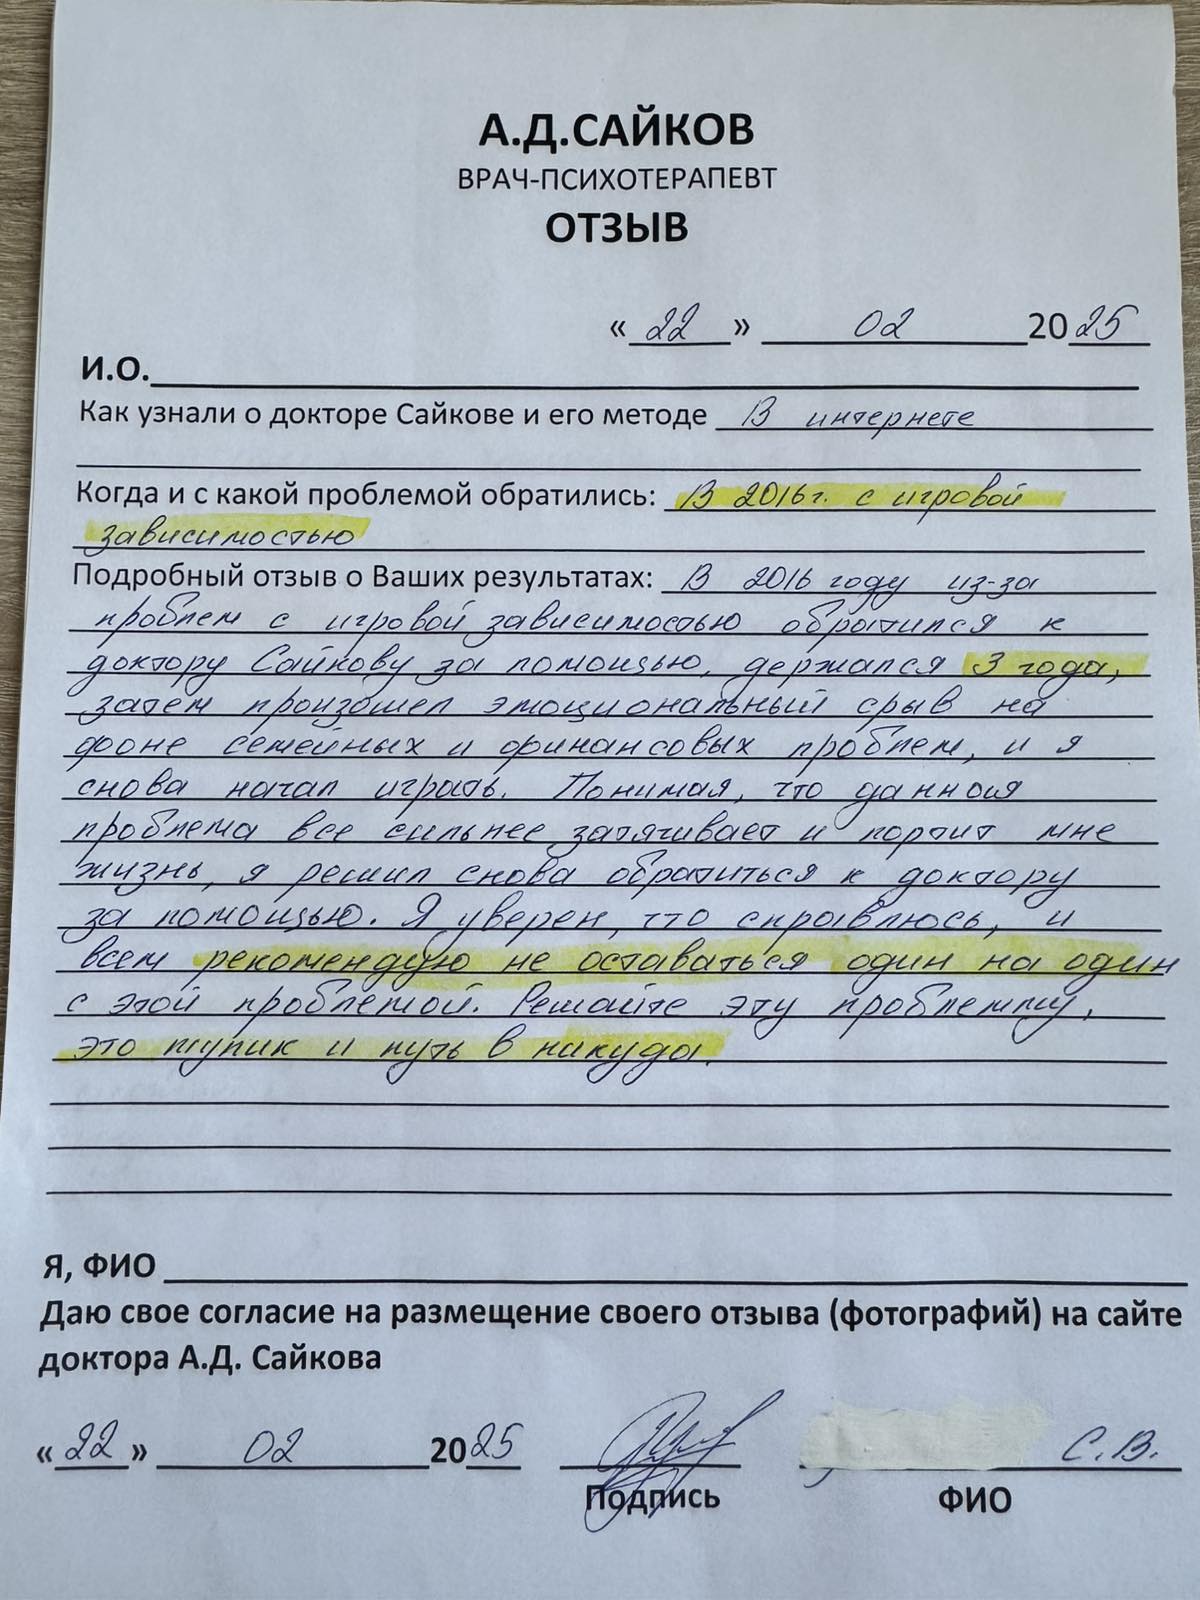 А.Д.САЙКОВ
ВРАЧ-ПСИХОТЕРАПЕВТ
ОТЗЫВ
« 22 » 02 2025
И.О.
Как узнали о докторе Сайкове и его методе В интернете
Когда и с какой проблемой обратились: В 2016г. с игровой
зависимостью
Подробный отзыв о Ваших результатах: В 2016 году из-за
проблем с игровой зависимостью обратился к
доктору Сайкову за помощью, держался 3 года,
затем произошел эмоциональный срыв на
фоне семейных и финансовых проблем, и я
снова начал играть. Понимая, что данная
проблема все сильнее затягивает и портит мне
жизнь, я решил снова обратиться к доктору
за помощью. Я уверен, что справлюсь, и
всем рекомендую не оставаться один на один
с этой проблемой. Решайте эту проблемму,
это тупик и путь в никуда.
Я, ФИО
Даю свое согласие на размещение своего отзыва (фотографий) на сайте
доктора А.Д. Сайкова
« 22 » 02 2025 С.В.
Подпись ФИО